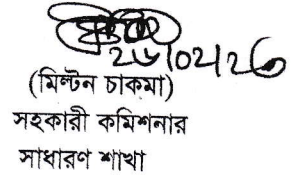 ২৬/০২/২৩
(মিল্টন চাকমা)
সহকারী কমিশনার
সাধারণ শাখা